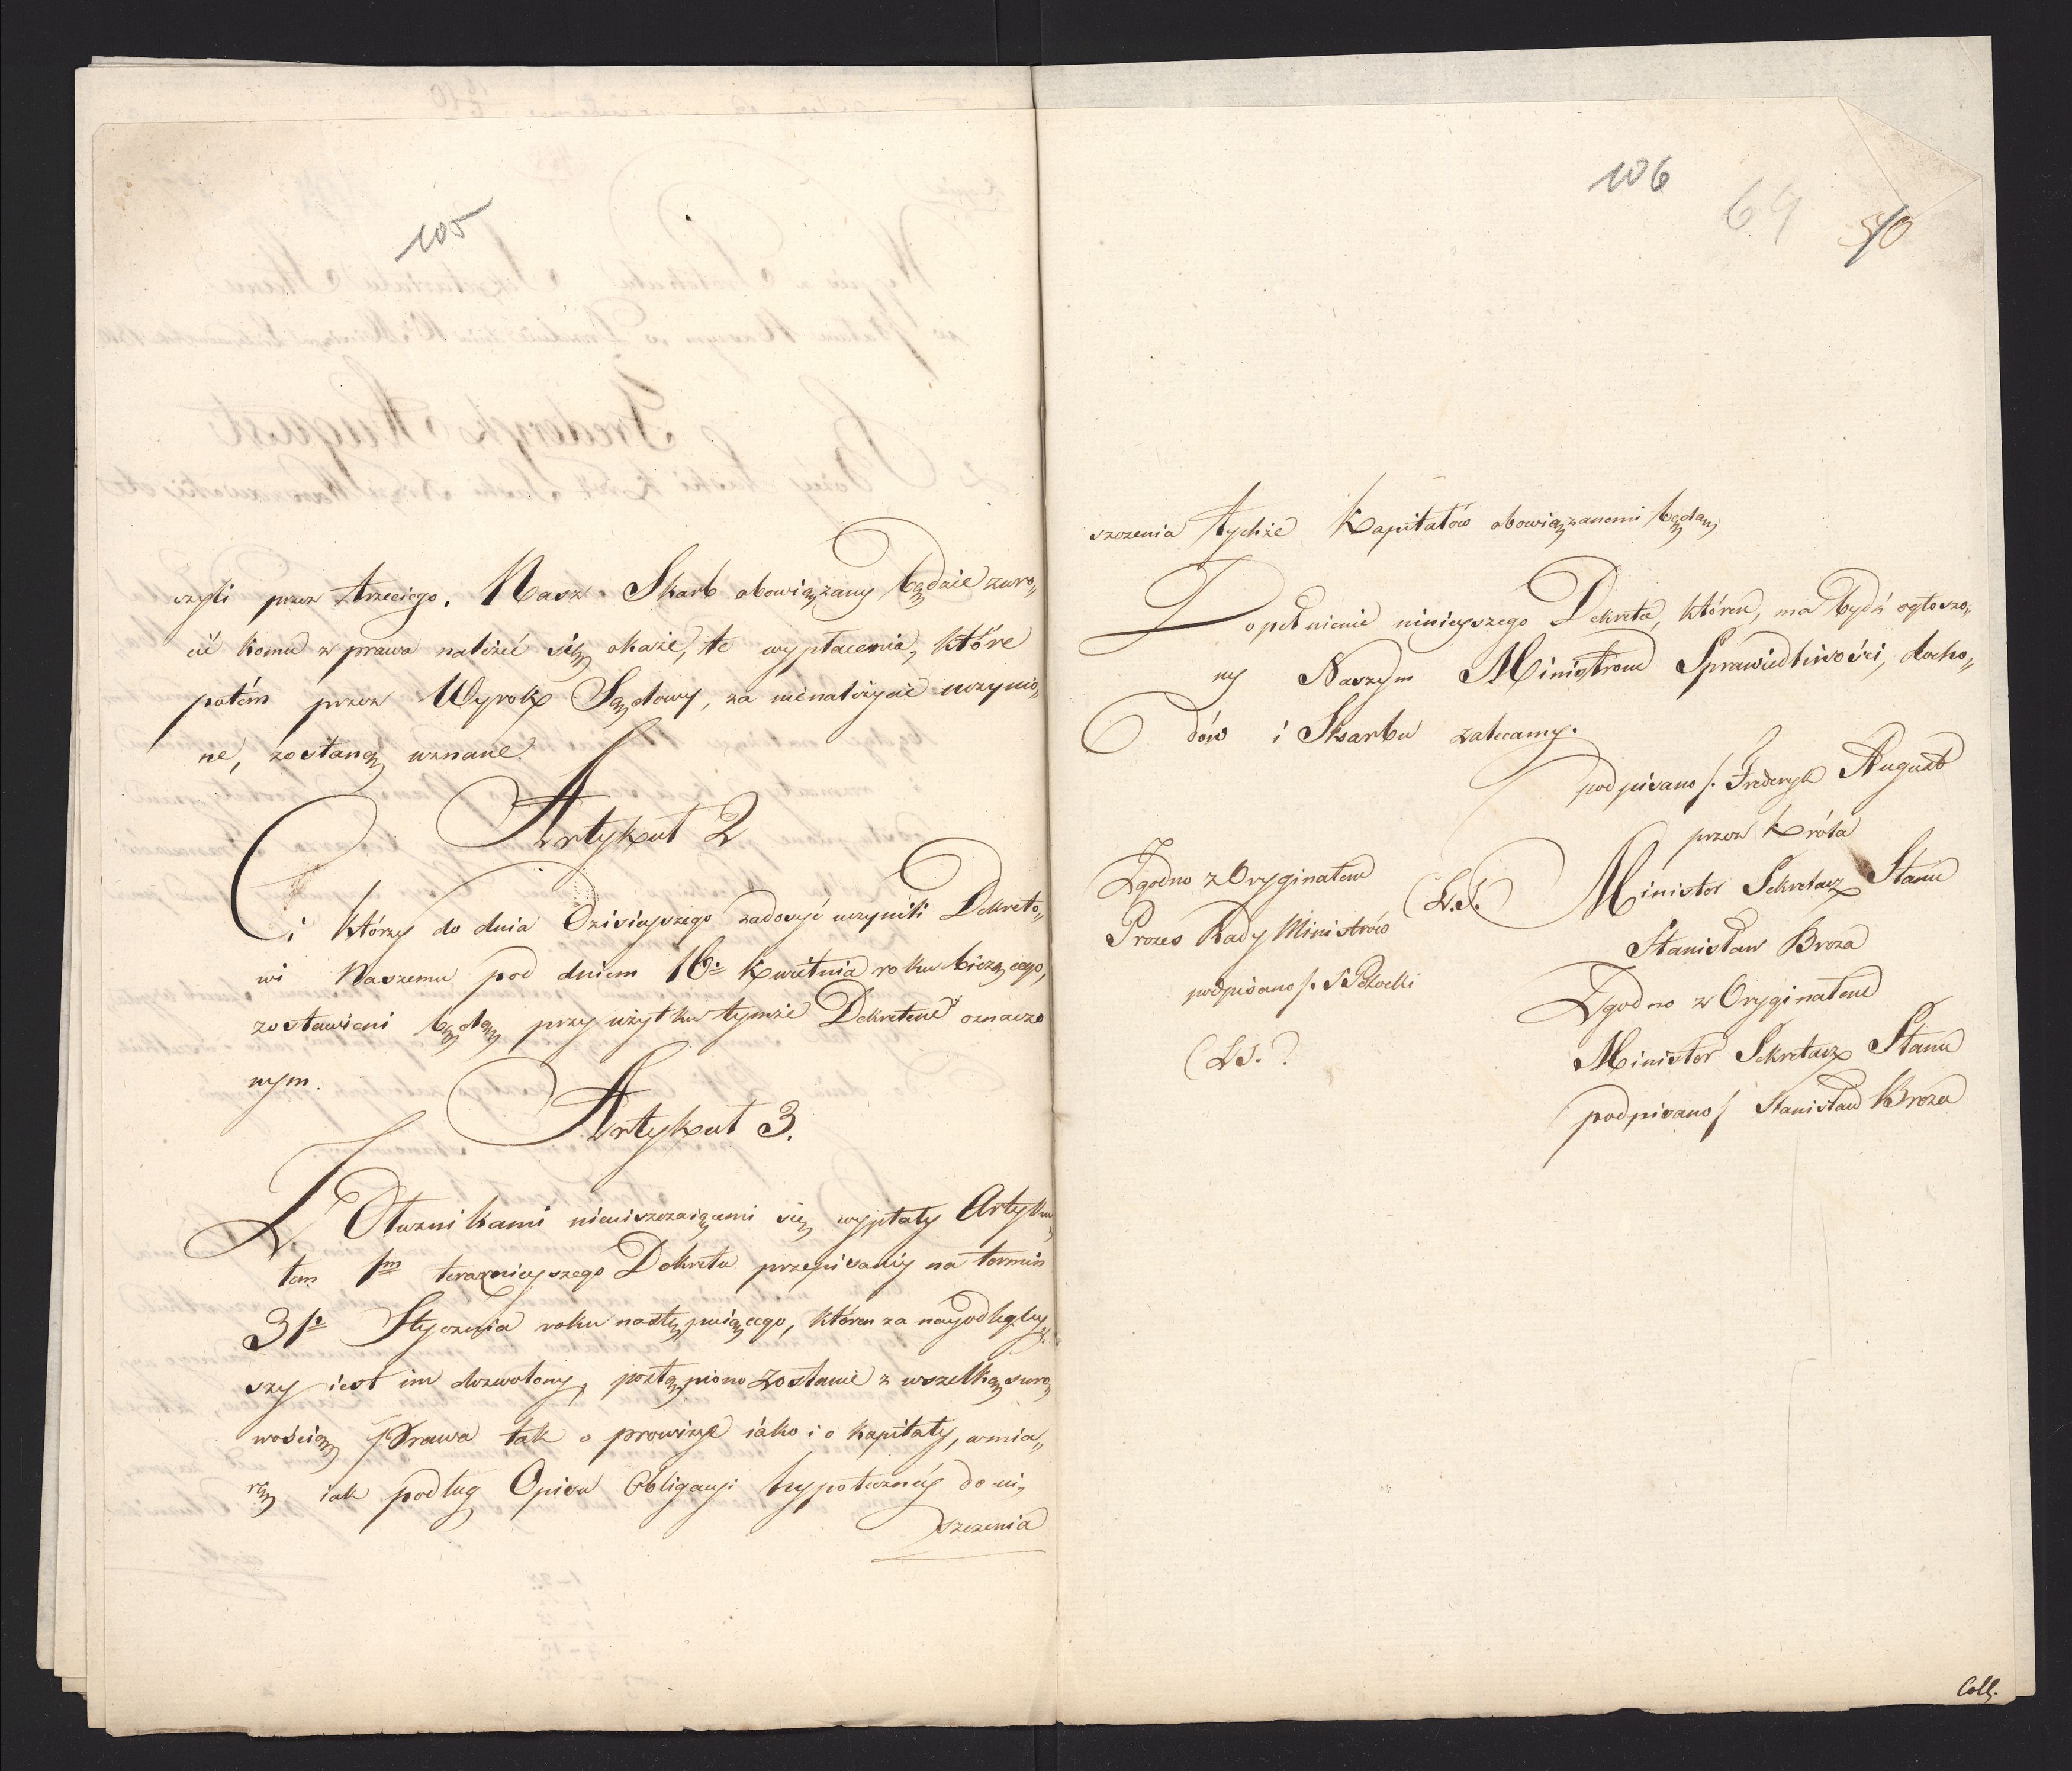 105
szyli przez trzeciego. Nasz Skarb obowiązany będzie zwró„
cić komu z prawa należéć się okaże, te wypłacenia, które
potém przez Wyrok Sądowy, za nienależycie uczynio„
ne, zostaną uznane.
Artykuł 2
Ci którzy do dnia dzisieyszego zadosyć uczynili Dekreto„
wi Naszemu pod dniem 16º Kwietnia roku bieżącego,
zostawieni będą przy użytku tymże Dekretem oznaczo
nym.
Artykuł 3.
Z Dłużnikami nieuiszczaiącemi się wypłaty Artyku„
łem 1m teraznieyszego Dekretu przepisaniy na termin
31º Stycznia roku następuiącego, któren za nayodlegley„
szy iest im dozwolony, postąpiono zostanie z wszelką suro„
wością Prawa tak o prowizye iako i o kapitały, w mia„
rę iak podług Opisu Obligacyi hypoteczney do ui„
szczenia
106
64
szczenia tychże Kapitałów obowiązanemi będą,
Dopełnienie ninieyszego Dekretu, któren, ma bydź ogłoszo„
ny Naszym Ministrom Sprawiedliwości, docho„
dów i Skarbu zalecamy.
podpisano /. Frederyk August
przez Króla
Minister Sekretarz Stanu
Stanisław Breza
Zgodno z Oryginałem
Minister Sekretarz Stanu
podpisano / Stanisław Breza
Zgodno z Oryginałem
(L.S.)
Prezes Rady Ministrów
podpisano /. S Potocki
(LS.)
Coll.